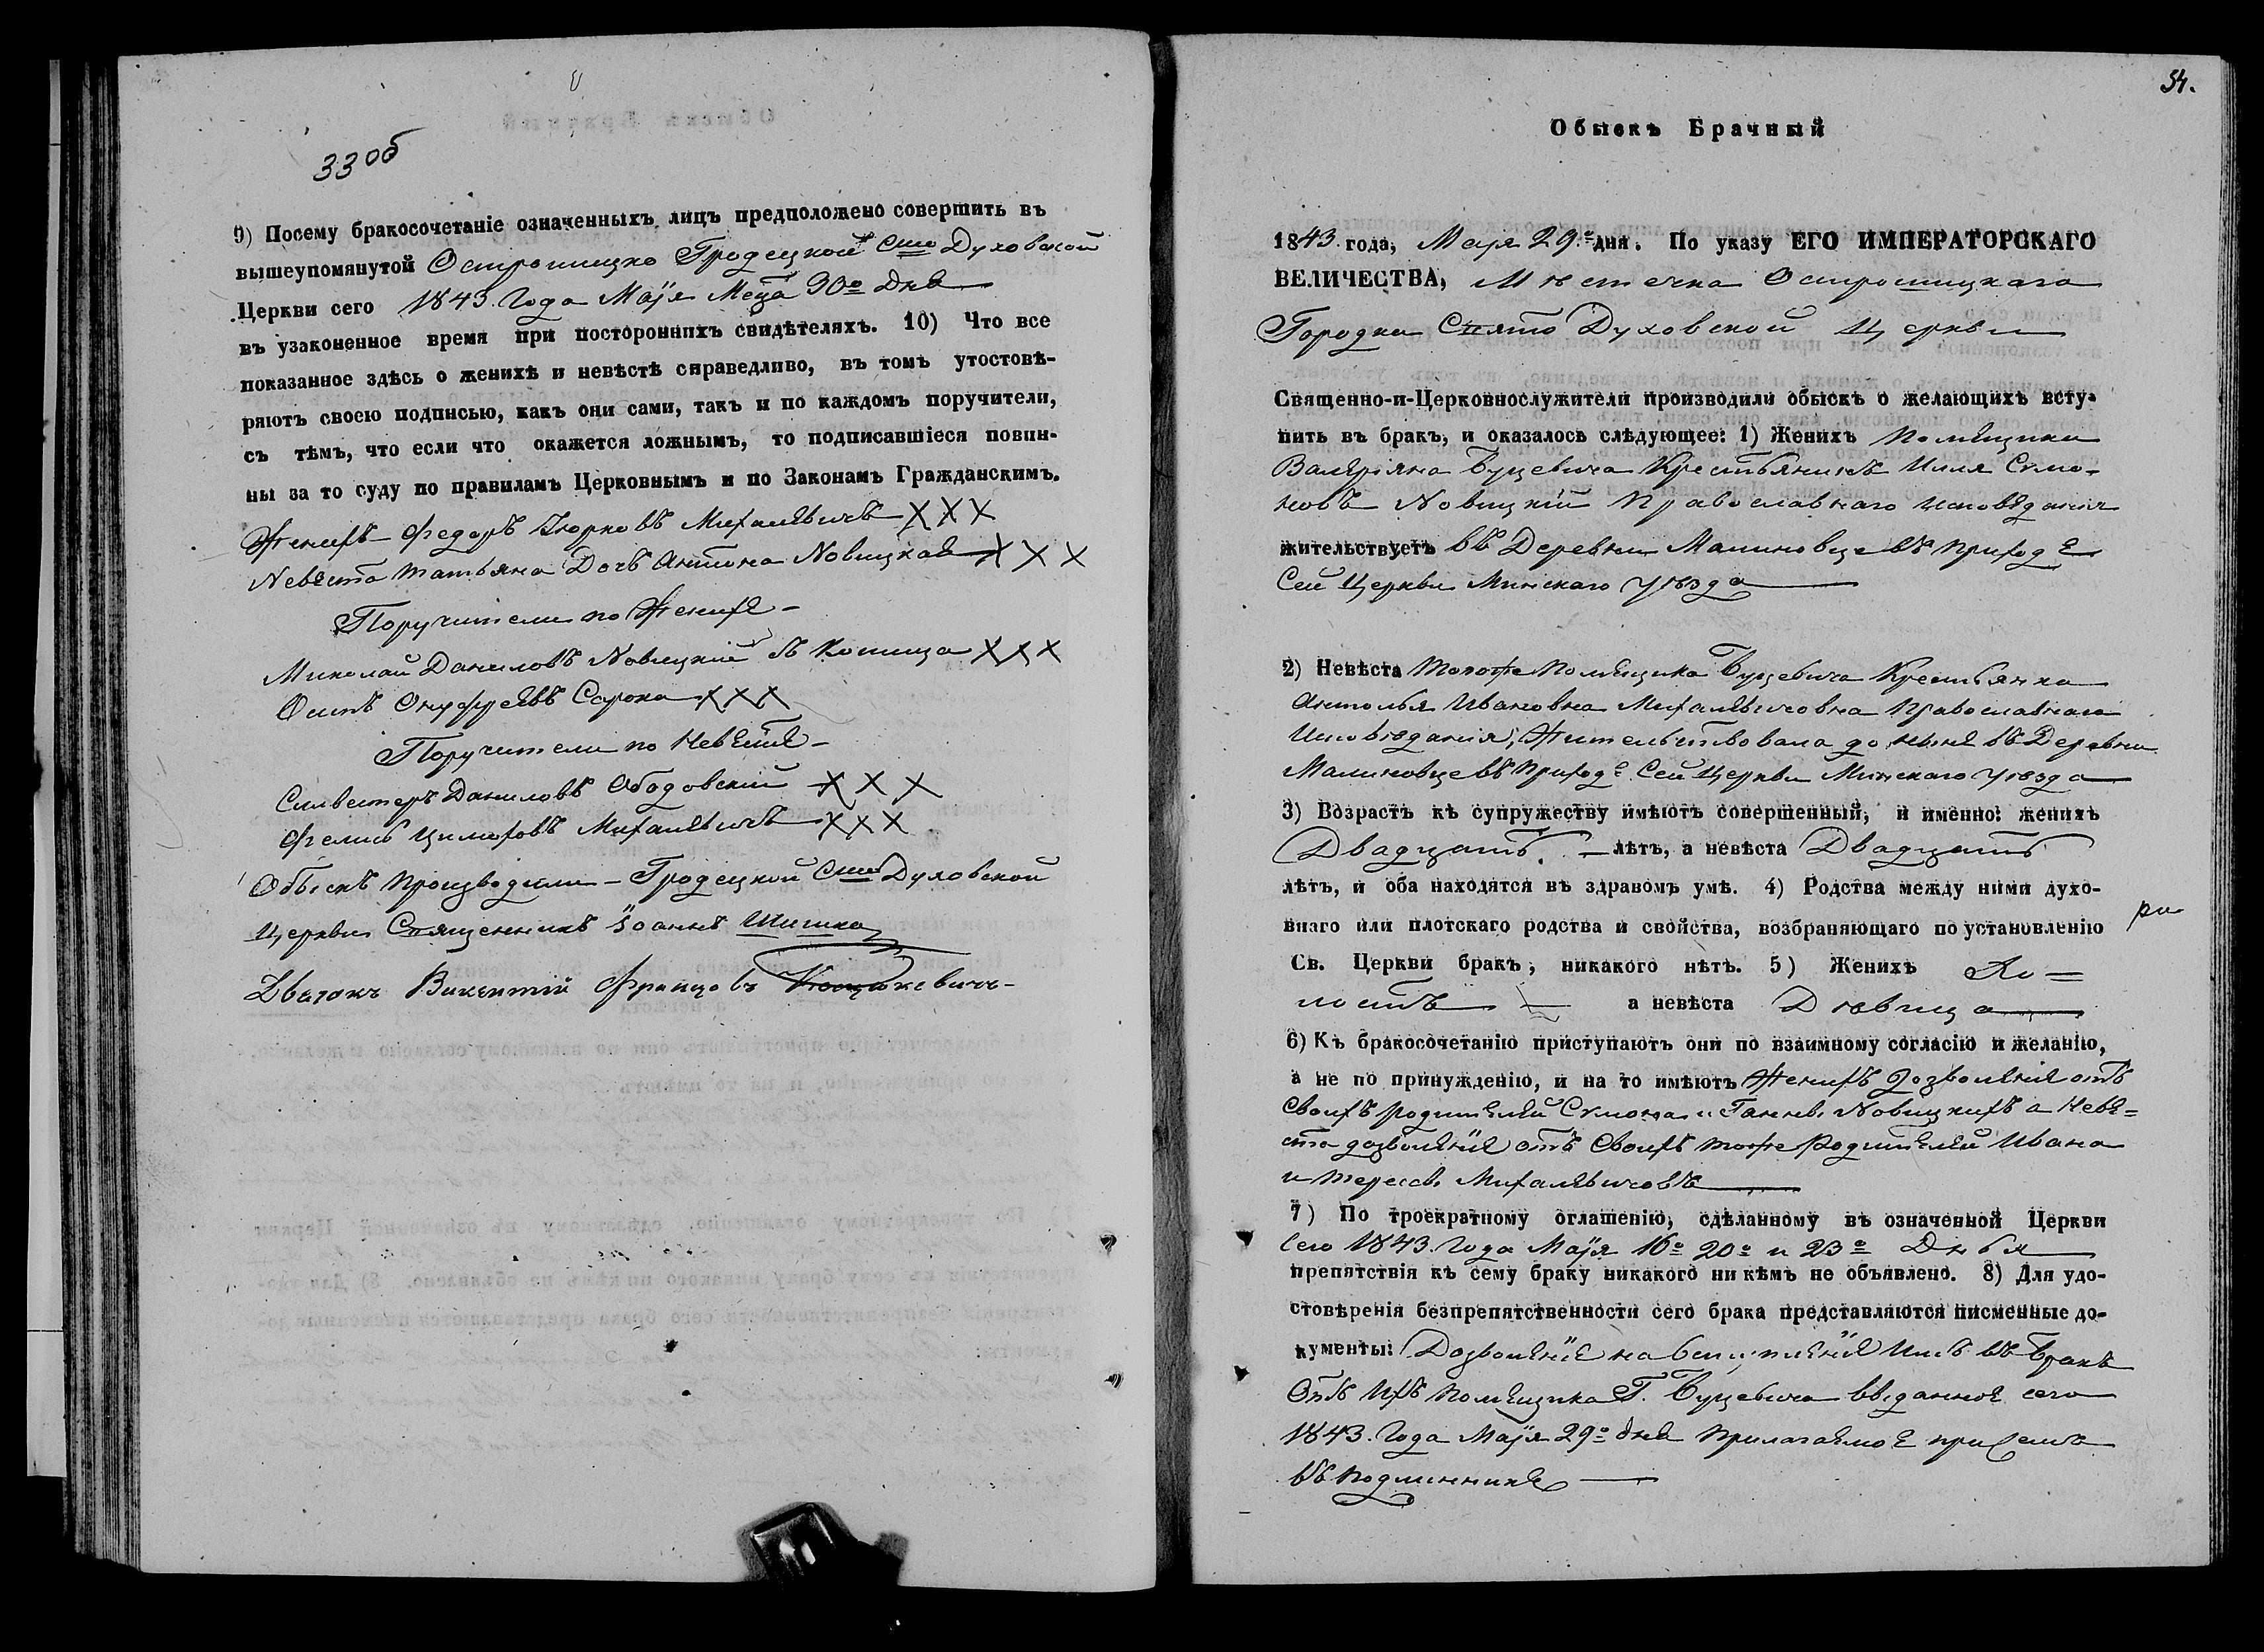 33 об
9) Посему бракосочетаніе означенныхъ лицъ предположено совершить въ
вышеупомянутой Острошицко Гродецкой Сто Духовской
Церкви сего 1843. Года Маія Мца 30о Дня
въ узаконенное время при постороннихъ свидѣтеляхъ. 10) Что все
показанное здѣсь о женихѣ и невѣстѣ справедливо, въ томъ утостовѣ-
ряютъ своею подписью, какъ они сами, такъ и по каждомъ поручители,
съ тѣмъ, что если что окажется ложнымъ, то подписавшіеся повин-
ны за то суду по правиламъ Церковнымъ и по Законамъ Гражданскимъ.
Женихъ Федоръ Юрковъ Михалевичъ ХХХ
Невеста Татьяна Дочь Антона Новицкая Х Х Х
Поручители по Женихе
Миколай Даниловъ Новицкій ХХХ
Осипъ Онуфреевъ Сорока ХХХ
Поручители по Невесте
Силвестеръ Даниловъ Ободовский Х Х Х
Фелиѣ Михалевичъ ХХХ
Обыскъ производили Гродецкой Сто Духовской
Церкви Священникъ Іоаннъ Шишка
Дьячокъ Викентій Францовъ
54.
Обыскъ Брачный
1843 года, Маія 29о дня. По указу ЕГО ИМПЕРАТОРСКАГО
ВЕЛИЧЕСТВА, Мѣстечка Острошицкаго
Городка Свято Духовской Церкви
Священно-и-Церковнослужители производили обыскъ о желающихъ всту-
пить въ бракъ, и оказалось слѣдующее: 1) Женихъ Помещика
Валеріяна Буцевича Крестьянинъ Илля Сымо-
новъ Новицкій Православнаго исповеданія
жительствуетъ въ Деревни Малиновце въ приходе
Сей Церкви Минскаго уѣзда
2) Невѣста тогоже Помещика Буцевича Крестьянка
Антоля Ивановна Михалевичовна Православнаго
Исповѣданія, Жительствовала до ныне въ Деревни
Малиновце въ приходе Сей Церкви Минскаго уѣзда
3) Возрастъ къ супружеству имѣютъ совершенный, и именно: женихъ
Двадцать лѣтъ, а невѣста Двадцать
лѣтъ, и оба находятся въ здравомъ умѣ. 4) Родства между ними духо-
внаго или плотскаго родства и свойства, возбраняющаго по установленію
Св. Церкви бракъ, никакого нѣтъ. 5) Женихъ Хо=
лостъ а невѣста Дѣвица
6) Къ бракосочетанію приступаютъ они по взаимному согласію и желанію,
а не по принужденію, и на то имѣютъ Женихъ дозволеніе отъ
своихъ родителей Сымона и Ганны Новицкихъ а Неве=
ста дозволеніе отъ своихъ тоже Родителей Ивана
и Тересы Михалевичовъ
7) По троекратному оглашенію, сдѣланному въ означенной Церкви
Сего 1843. Года Маія 16о 20о и 23о Дня
препятствія къ сему браку никакого ни кѣмъ не объявлено. 8) Для удо-
стовѣренія безпрепятственности сего брака представляются писменные до-
кументы: Дозволеніе на вступленіе имъ въ Бракъ
Отъ Ихъ Помещика Г. Буцевича выданное сего
1843. Года Маія 29о дня прилагаемое при семъ
въ подлиннике